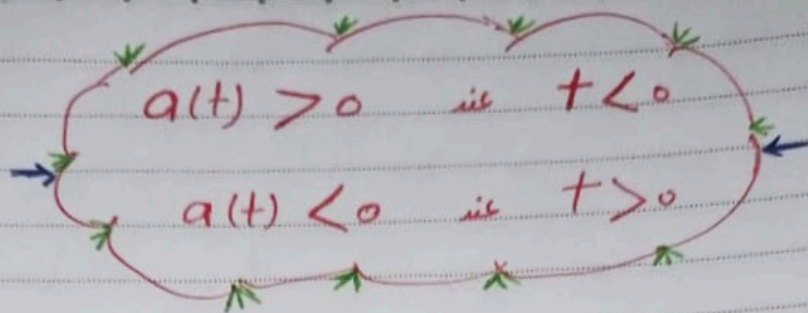 a(t) > 0 عند t < 0
a(t) < 0 عند t > 0